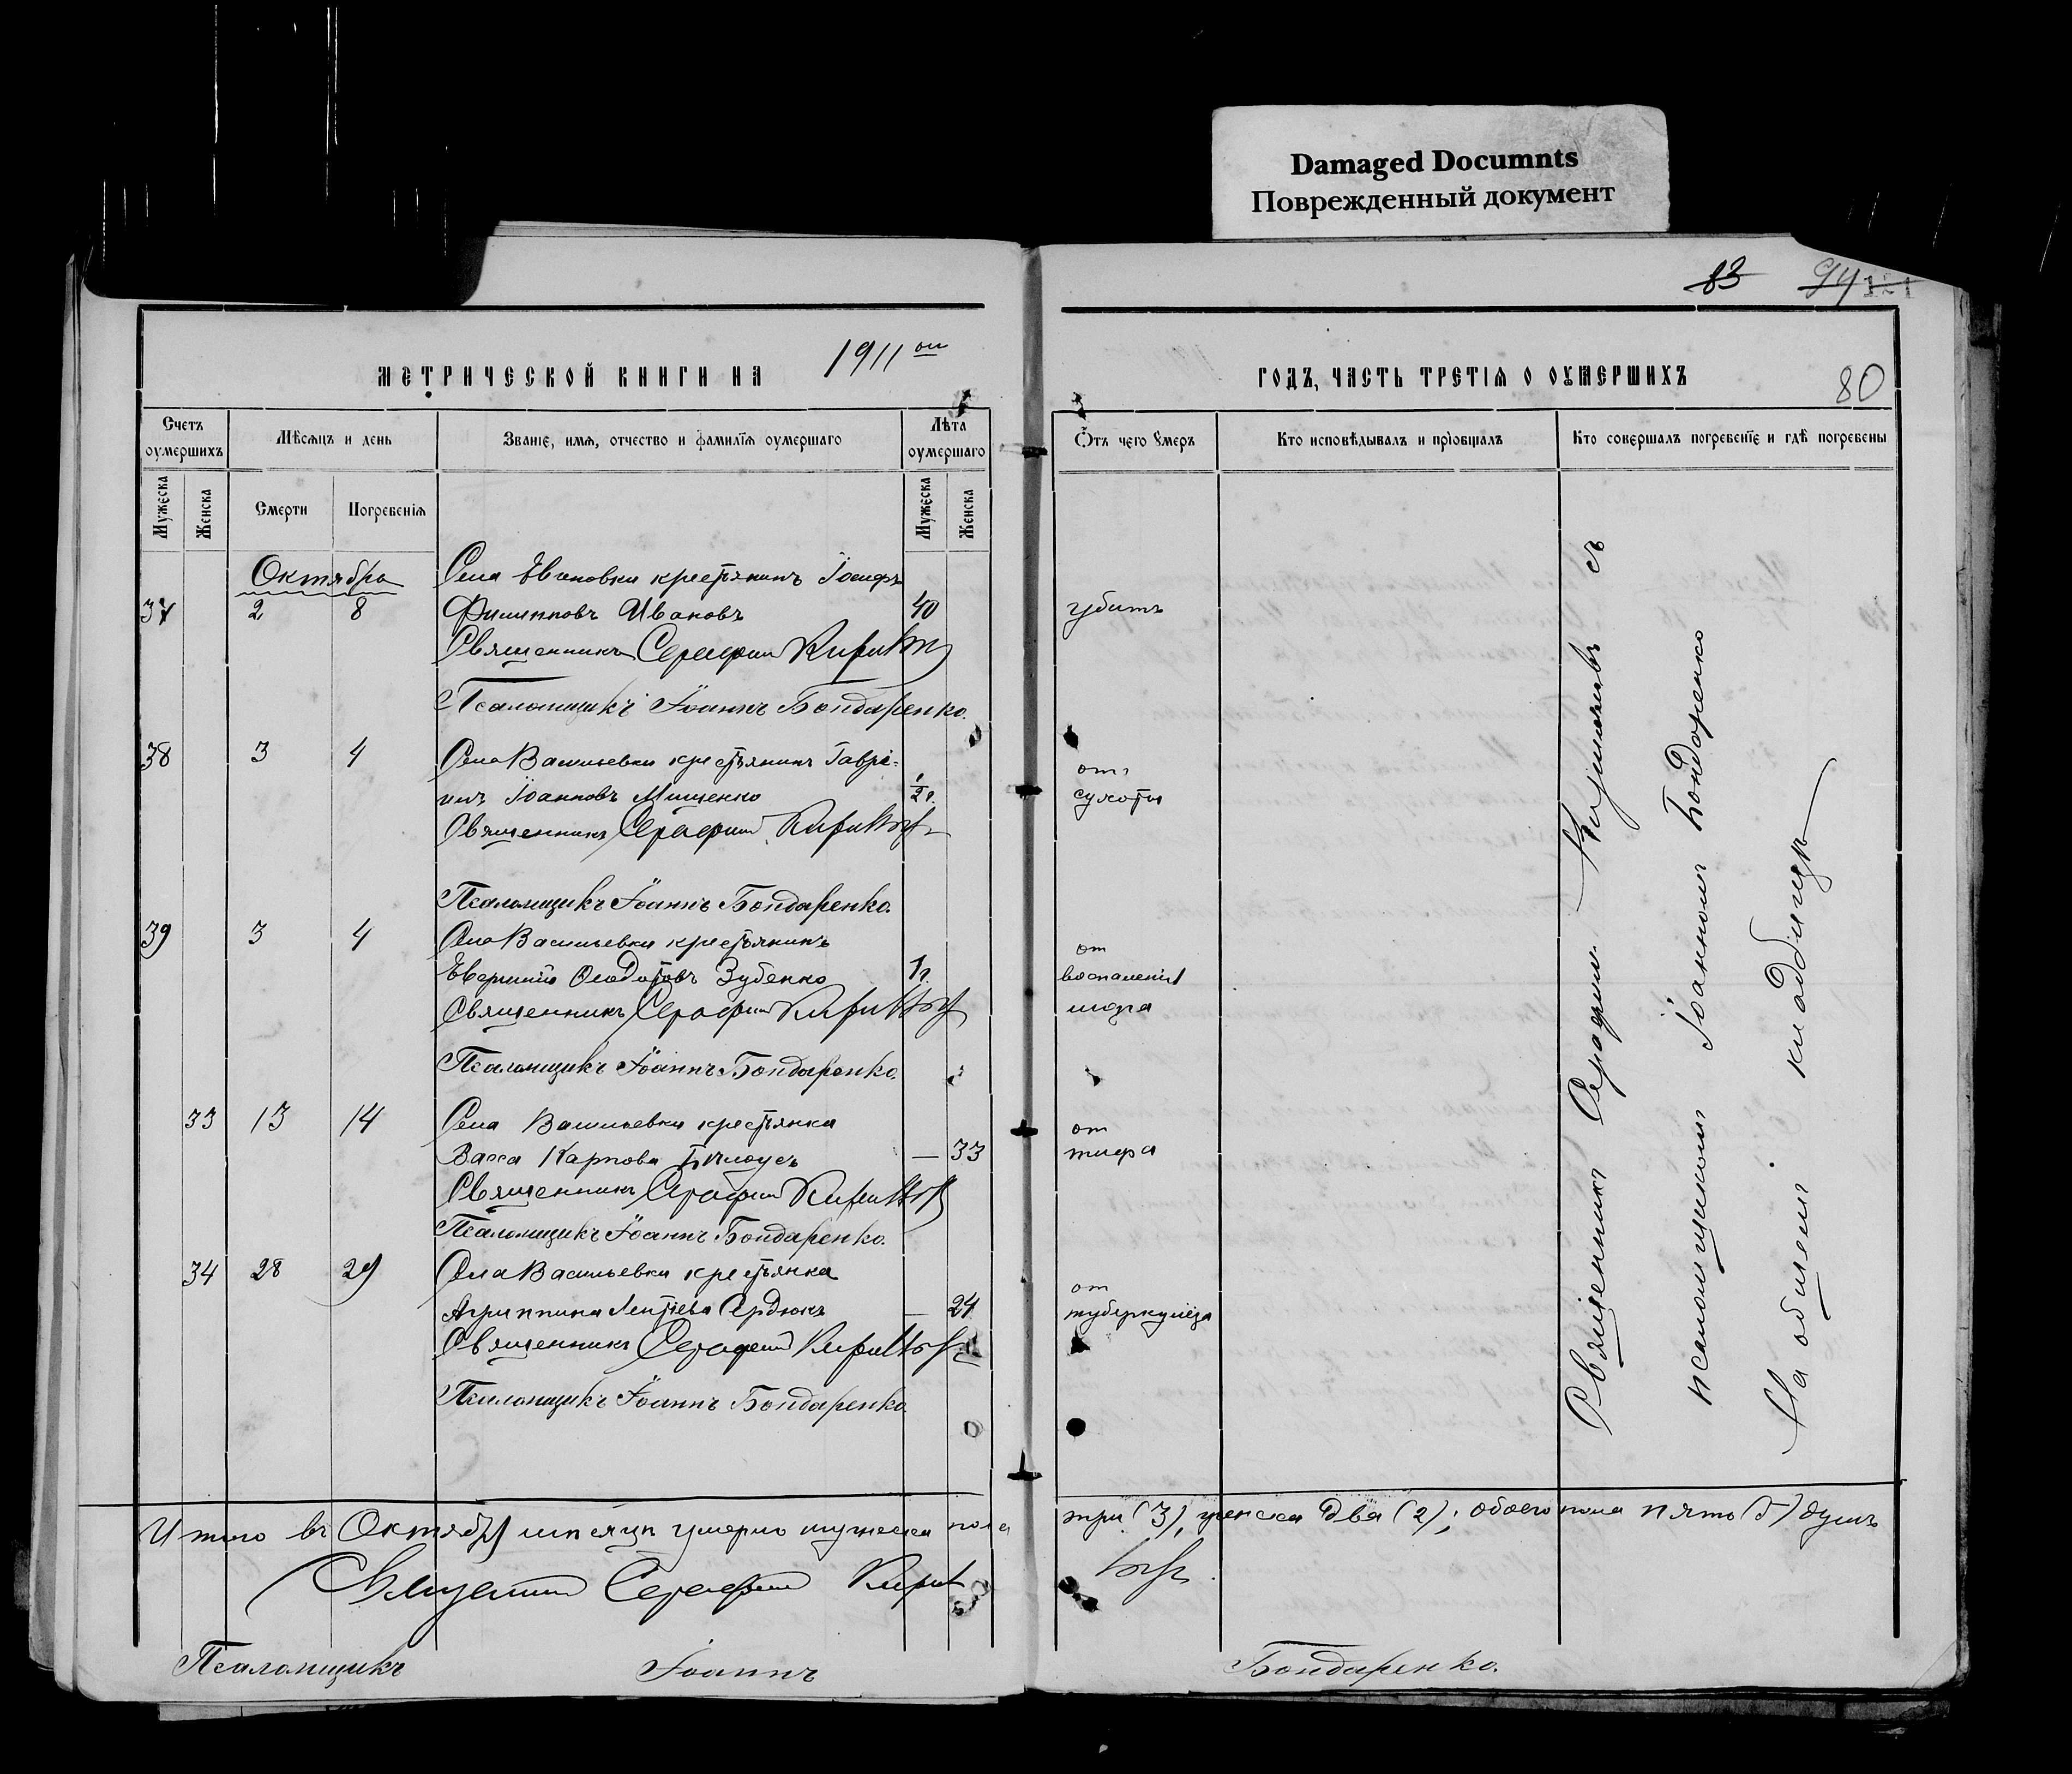 Damaged Documnts
Поврежденный документ
83 94 121
МЕТРИЧЕСКОЙ КНИГИ НА 1911 ый
ГОДЪ, ЧАСТЬ ТРЕТІЯ О ОУМЕРШИХЪ 80
Счетъ оумершихъ
Мѣсяцъ и день
Званіе, имя, отчество и фамилія оумершаго
Лѣта оумершаго
Отъ чего оумеръ
Кто исповѣдывалъ и пріобщалъ
Кто совершалъ погребеніе и гдѣ погребены
Мужеска
Женска
Смерти
Погребенія
Мужеска
Женска
Октябрь
Села крестьянинъ Іосифъ
37 2 8 Филипповъ Ивановъ 40 убитъ
Священникъ Серафим
Псаломщикъ Іоаннъ Бондаренко.
38 3 4 Села Васильевки крестьянинъ Гаврі-
илъ Іоанновъ Мищенко 1/2 г. отъ сухоты
Священникъ Серафим
Псаломщикъ Іоаннъ Бондаренко.
39 3 4 Села Васильевки крестьянинъ
Ѳеодотовъ Зубенко 1 г. от воспаленія
Священникъ Серафим
Псаломщикъ Іоаннъ Бондаренко.
33 13 14 Села Васильевки крестьянка
Васса Карпова Бѣлоусъ — 33 от тифа
Священникъ Серафим
Псаломщикъ Іоаннъ Бондаренко.
34 28 29 Села Васильевки крестьянка
Агриппина Сердюкъ — 24 от туберкулёза
Священникъ Серафим
Псаломщикъ Іоаннъ Бондаренко.
Священникъ Серафим съ
псаломщикомъ Іоанномъ Бондаренко
На общемъ кладбищѣ
Итого въ Октябрѣ мѣсяцѣ умерло мужеска пола три (3), женска два (2); обоего пола пять (5) душъ
Священникъ Серафим
Псаломщикъ Іоаннъ Бондаренко.